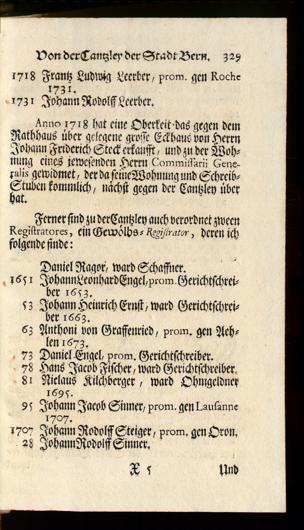 Von der Cantzley der Stadt Bern. 329
1718 Frantz Ludwig Leerber, prom. gen Roche
1731.
1731 Johann Rodolff Leerber.
Anno 1718 hat eine Oberkeit das gegen dem
Rathhaus über gelegene grosse Eckhaus von Herrn
Johann Friderich Steck erkaufft, und zu der Woh-
nung eines jewesenden Herrn Commissarii Gene-
ralis gewidmet, der da seine Wohnung und Schreib-
Stuben kommlich, nächst gegen der Cantzley über
hat.
Ferner sind zu der Cantzley auch verordnet zween
Registratores, ein Gewölbs-Registrator, deren ich
folgende finde:
Daniel Ragor, ward Schaffner.
1651 Johann Leonhard Engel, prom. Gerichtschrei-
ber 1653.
53 Johann Heinrich Ernst, ward Gerichtschrei-
ber 1663.
63 Anthoni von Graffenried, prom. gen Aeh-
len 1673.
73 Daniel Engel, prom. Gerichtschreiber.
78 Hans Jacob Fischer, ward Gerichtschreiber.
81 Niclaus Kilchberger, ward Ohmgeldner
1695.
95 Johann Jacob Sinner, prom. gen Lausanne
1707.
1707 Johann Rodolff Steiger, prom. gen Oron.
28 Johann Rodolff Sinner.
X 5 Und